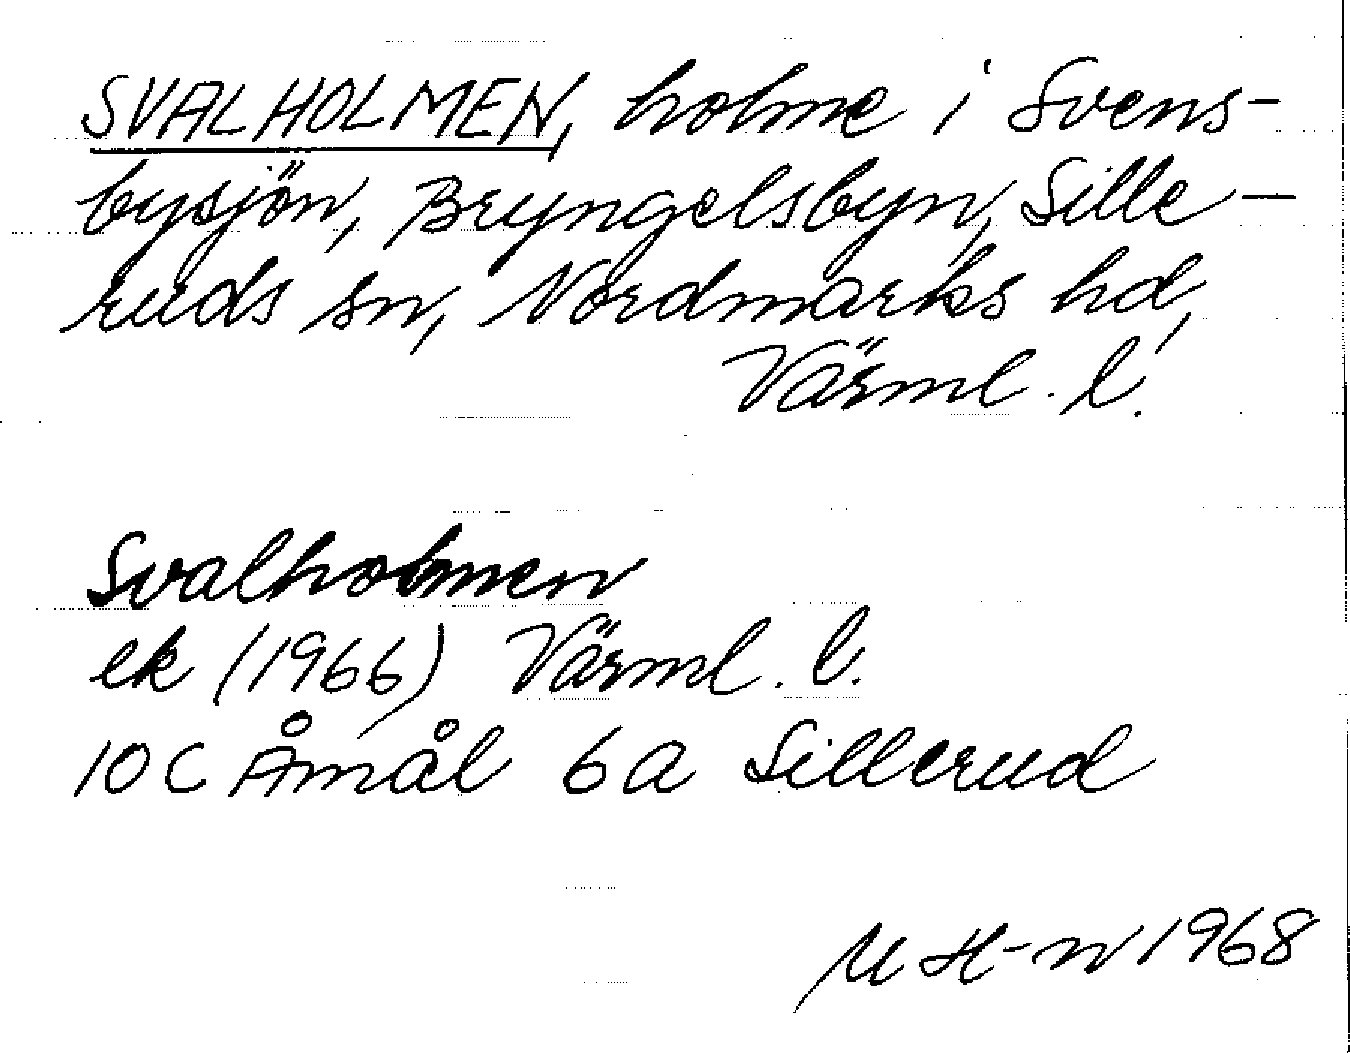 SVALHOLMEN, holme i Svens-
bysjön, Bryngelsbyn, Sille-
ruds sn, Nordmarks hd,
Värml. l.
Svalholmen
ek (1966) Värml. l.
10 C Åmål 6 a Sillerud
M H-n 1968